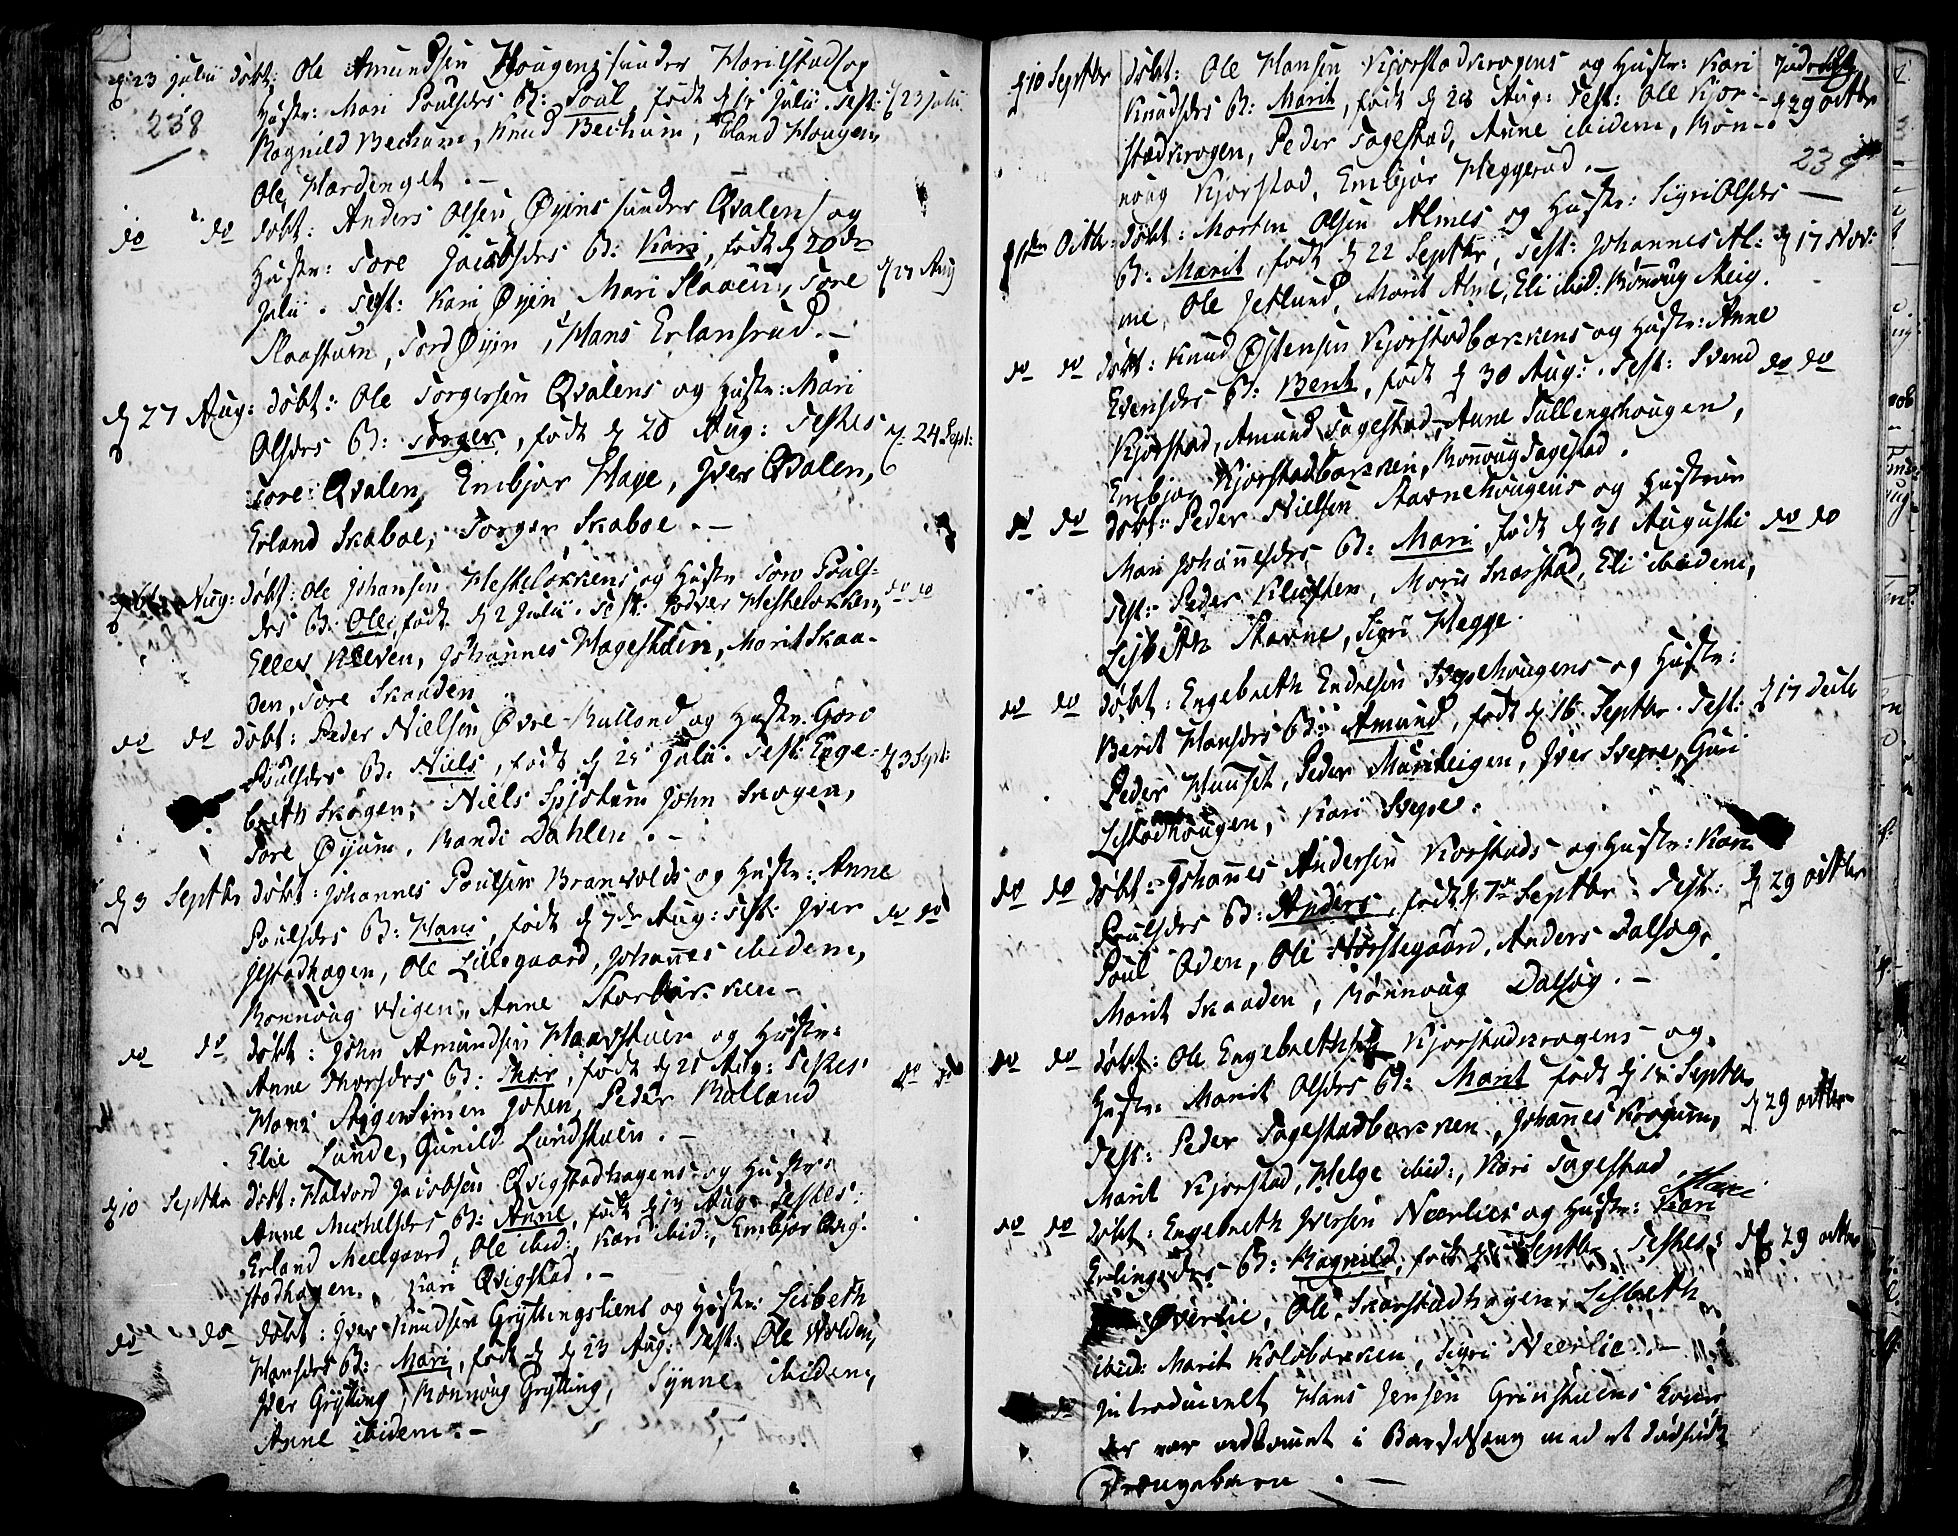 d 23 Julii døbt: Ole Amundsen Hougens under Harilstad og
238 Hustr: Mari Poulsdrs B: Poul, født d 15 Julii. Test: d 23 Julii
Ragnild Bechum, Knud Bechum, Eland Hougen,
Ole Hardenget. –
do do døbt: Anders Olsen Øyens under Qvalen og
Hustr: Tore Jacobsdrs B: Kari, født d 20de
Julii. Test: Kari Øyen Mari Slaaen, Tore d 27 Aug
Slaastuen, Tord Øyen, Hans Erlansrud. –
d 27 Aug: døbt: Ole Torgersen Qvalens og Hustr: Mari
Olsdrs B: Torger, født d 20 Aug: Testes d: 24 Sept:
Tore Qvalen, Embjør Hage, Iver Qvalen,
Erland Skaboe, Torger Skaboe. –
Aug: døbt: Ole Johansen Heskeløkkens og Hustr Pouls-
drs B: Ole, født d 2 Julii. Test. Heskeløkken, do do
Eller Kleven, Johannes Hagestuen, Marit Skaa-
den, Tore Skaaden
do do døbt: Peder Nielsen Øvre-Rulland og Hustr: Goro
Poulsdrs B: Niels, født d 25 Julii. Test: Enge- d 3 Sept:
breth Skogen, Niels John Skogen,
Tore Øyum, Randi Dahlen. –
d 3 Septbr døbt: Johannes Poulsen Branvolds og Hustr: Anne
Poulsdrs B: Hans, født d 7de Aug: Test: Iver do do
Jestadhagen, Ole Lillegaard, Johannes ibidem,
Ronnoug Wigen, Anne Storbækken –
do do døbt: John Amundsen Haavstuen og Hustr:
Anne Thorsdrs B: Thor, født d 21 Aug: Testes do do
Hans Simen Peder Rulland
Elie Lunde, Gunild Lundstuen. –
d 10 Septbr døbt: Halvord Jacobsen Qvigstadhagens og Hustr:
Anne Michelsdrs B: Anne, født d 13 Aug: Testes:
Erland Meelgaard, Ole ibid:, Kari ibid:, Embjør Qvig-
stadhagen, Kari Qvigstad. –
do do døbt: Iver Knudsen Gryttingsliens og Hustr: Lisbeth
Hansdrs B: Mari, født d 23 Aug: Test: Ole Wolden,
Iver Grytting, Ronnoug Grytting, Synne ibidem,
Anne ibidem. –
d 10 Septbr døbt: Ole Hansen Kjorstadkrogens og Hustr: Kari
Knudsdrs B: Marit, født d 28 Aug: Test: Ole Kjor- d 29 octbr
stadkrogen, Peder Tagestad, Anne ibidem, Ron- 239
noug Kjorstad, Embjør Heggerud. –
d 1ste Octbr: døbt: Morten Olsen Almes og Hustr: Sigri Olsdrs
B: Marit, født d 22 Septbr, Test: Johannes Al- d 17 Nov:
me, Ole Jetlund, Marit Alme, Eli ibid: Rønnoug Steig.
do do døbt: Knud Østensen Kjorstadbækkens og Hustr: Anne
Evensdrs B: Bent, født d 30 Aug:. Test: Svend do do
Kjorstad, Amund Tagestad, Anne Tullengshougen,
Embjør Kjorstadbækken, Rønnoug Tagestad.
do do døbt: Peder Nielsen Stavnehougens og Hustrue
Mari Johannesdrs B: Mari født d 31 Augusti do do
Test: Peder Kluften, Moris Skarstad, Eli ibidem,
Lisbeth Stavne, Sigri Hegge.
do do døbt: Engebreth Endresen Svepehougens og Hustr:
Berit Hansdrs B: Amund, født d 16 Septbr. Test: d 17 Decbr
Peder Huuset, Peder Muusteigen, Iver Svepe, Guri
Listadhougen, Kari Svepe.
do do døbt: Johannes Andersen Korstads og Hustr: Kari
Poulsdrs B: Anders, født d 7de Septbr: Test: d 29 octbr
Poul Oden, Ole Norstegaard, Anders Dalsøg,
Marit Skaaden, Rønnoug Dalsøg. –
do do døbt: Ole Engebrethsen Kjorstadkrogens og
Hustr: Marit Olsdrs B: Marit født d 15 Septbr d 29 octbr
Test: Peder Tagestadbækken, Johannes Korgum,
Marit Kjorstad, Helge ibid:, Kari Tagestad
do do døbt: Engebreth Iversen Neerlies og Hustr: Kari Mari
Erlingsdrs B: Ragnild, født d Septbr Testes: d 29 octbr
Øverlie, Ole Skarstadhagen, Lisbeth
ibid: Marit Kolobækken, Sigri Neerlie. –
do Introduceret Hans Jensen Grinstuens Kone
der var nedkommet i Barselseng med et dødfødt
Drængebarn. –